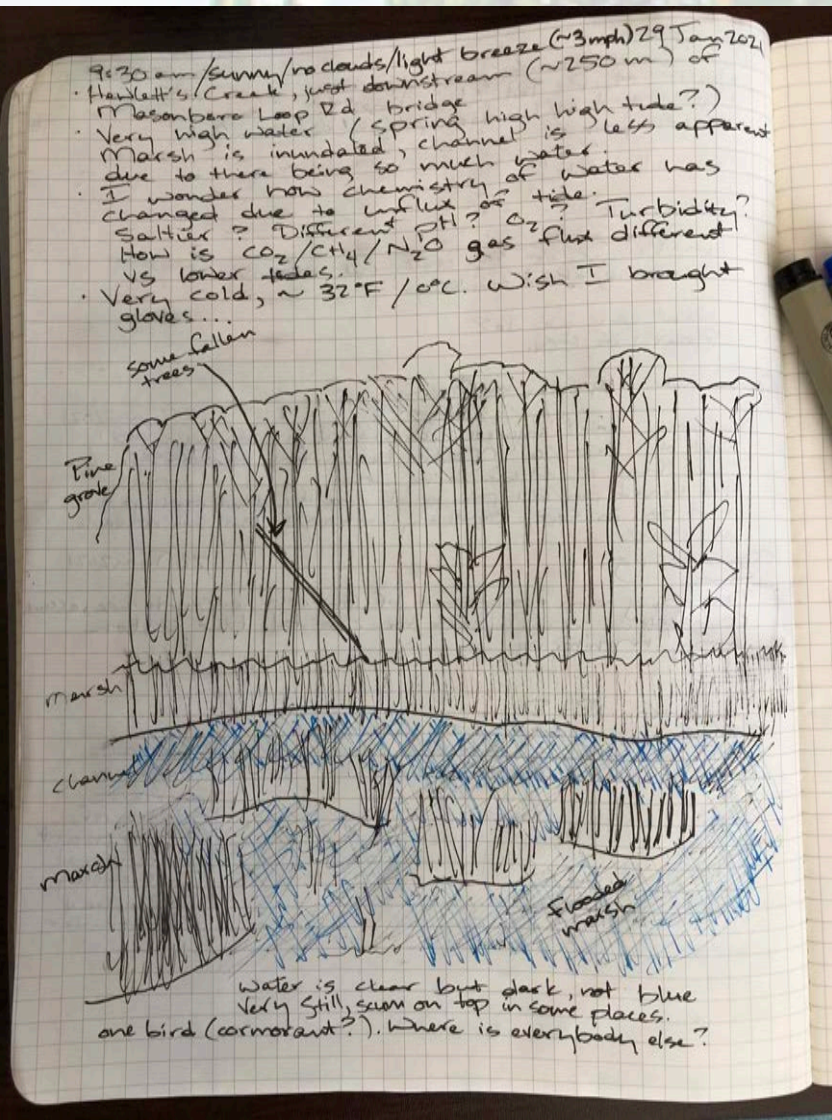 9:30 am/sunny/no clouds/light breeze (~3mph) 29 Jan 2021
· Hewlett's Creek, just downstream (~250 m) of
Masonboro Loop Rd bridge
· Very high water (spring high high tide?)
Marsh is inundated, channel is less apparent
due to there being so much water.
· I wonder how chemistry of water has
changed due to influx of tide.
Saltier? Different pH? O2? Turbidity?
How is CO2/CH4/N2O gas flux different
vs lower tides.
· Very cold, ~ 32°F/0°C. Wish I brought
gloves...
some fallen
trees
Pine
grove
marsh
channel
marsh
flooded
marsh
water is clear but dark, not blue
Very still, scum on top in some places.
one bird (cormorant?). Where is everybody else?